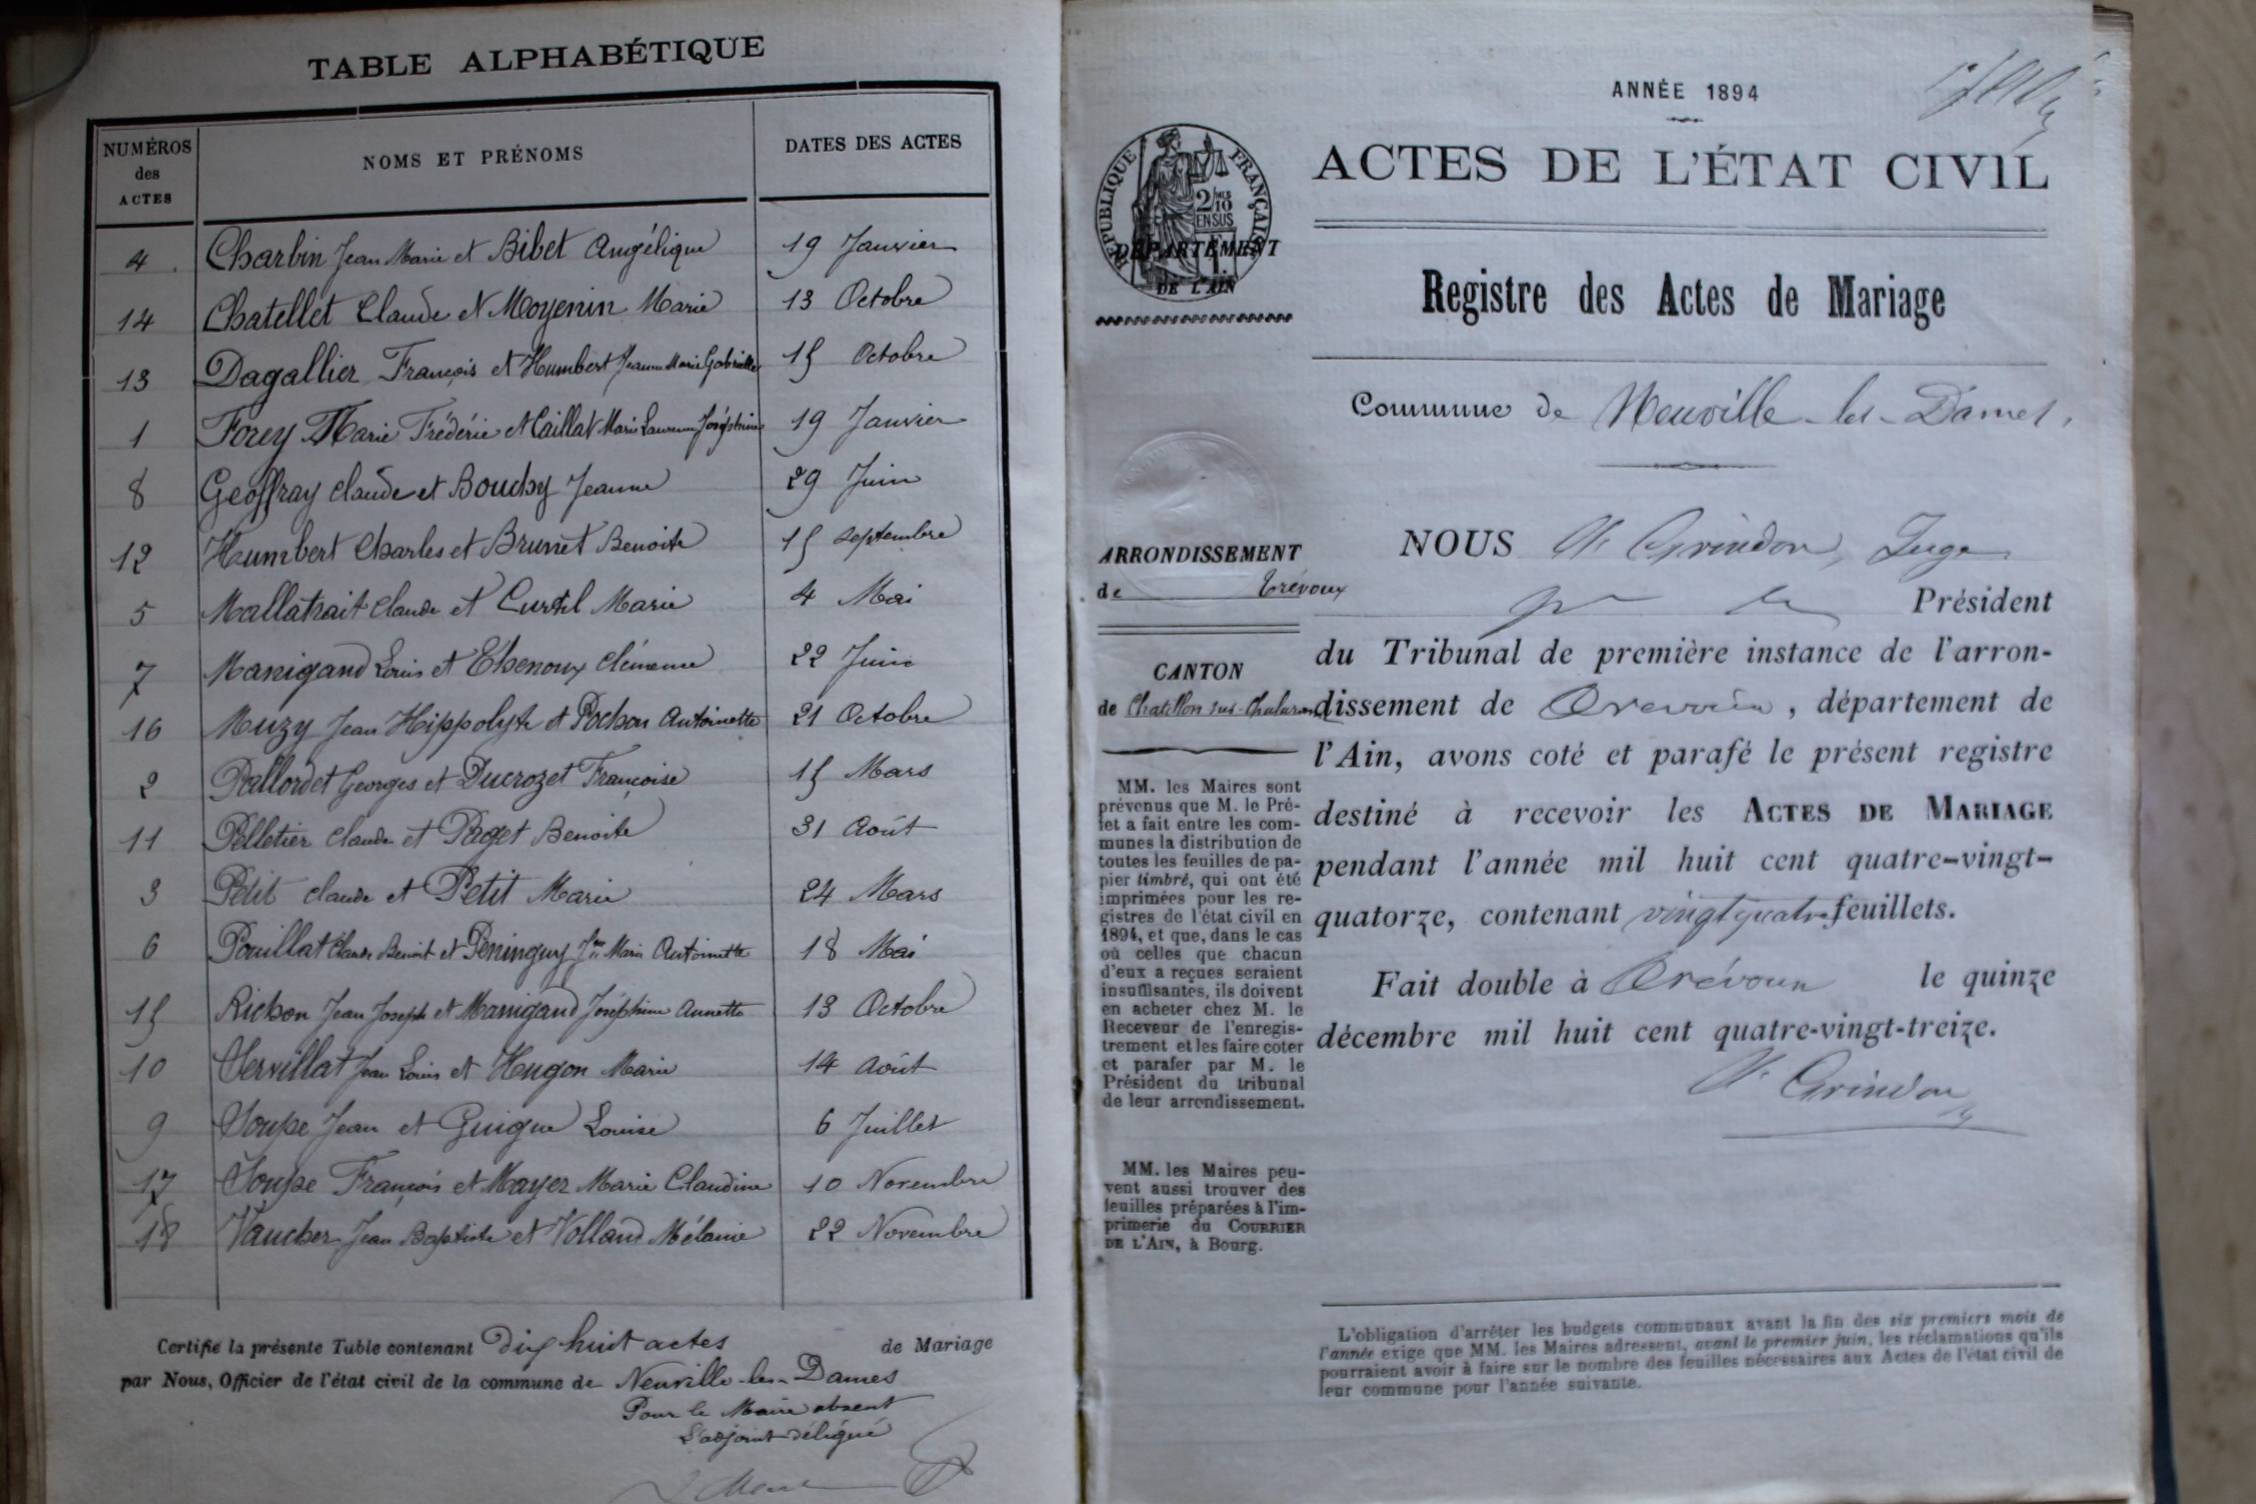 TABLE ALPHABÉTIQUE
NUMÉROS des ACTES NOMS ET PRÉNOMS DATES DES ACTES
4 Charbin Jean Marie et Bibet Angélique 19 Janvier
14 Chatellet Claude et Moyenin Marie 13 Octobre
13 Dagallier François et Humbert Jeanne Marie Gabrielle 15 Octobre
1 Forey Marie Frédéric et Caillat Marie Laurence Joséphine 19 Janvier
8 Geoffray Claude et Bouchy Jeanne 29 Juin
12 Humbert Charles et Brunet Benoite 15 Septembre
5 Mallatrait Claude et Curtil Marie 4 Mai
7 Manigand Louis et Thenoux Clémence 22 Juin
16 Muzy Jean Hippolyte et Pochon Antoinette 21 Octobre
2 Pallordet Georges et Ducrozet Françoise 15 Mars
11 Pelletier Claude et Paget Benoite 31 Août
3 Petit Claude et Petit Marie 24 Mars
6 Pouillat Claude Benoit et Peninguy Jne Marie Antoinette 18 Mai
15 Richon Jean Joseph et Manigand Joséphine Annette 13 Octobre
10 Servillat Jean Louis et Hugon Marie 14 Août
9 Soupe Jean et Guigue Louise 6 Juillet
17 Soupe François et Mayer Marie Claudine 10 Novembre
18 Vaucher Jean Baptiste et Volland Mélanie 22 Novembre
Certifie la présente Table contenant Dix huit actes de Mariage
par Nous, Officier de l'état civil de la commune de Neuville-les-Dames
Pour le Maire absent
L'adjoint délégué
ANNÉE 1894
ACTES DE L'ÉTAT CIVIL
RÉPUBLIQUE FRANÇAISE
2/10
EN SUS
DÉPARTEMENT
DE L'AIN
Registre des Actes de Mariage
Commune de Neuville-les-Dames,
ARRONDISSEMENT
de Trévoux
CANTON
de Chatillon sur Chalaronne
MM. les Maires sont
prévenus que M. le Pré-
fet a fait entre les com-
munes la distribution de
toutes les feuilles de pa-
pier timbré, qui ont été
imprimées pour les re-
gistres de l'état civil en
1894, et que, dans le cas
où celles que chacun
d'eux a reçues seraient
insuffisantes, ils doivent
en acheter chez M. le
Receveur de l'enregis-
trement et les faire coter
et parafer par M. le
Président du tribunal
de leur arrondissement.
MM. les Maires peu-
vent aussi trouver des
feuilles préparées à l'im-
primerie du COURRIER
DE L'AIN, à Bourg.
NOUS Grindon, Juge
Président
du Tribunal de première instance de l'arron-
dissement de Trévoux, département de
l'Ain, avons coté et parafé le présent registre
destiné à recevoir les ACTES DE MARIAGE
pendant l'année mil huit cent quatre-vingt-
quatorze, contenant vingt quatre feuillets.
Fait double à Trévoux le quinze
décembre mil huit cent quatre-vingt-treize.
Grindon
L'obligation d'arrêter les budgets communaux avant la fin des six premiers mois de
l'année exige que MM. les Maires adressent, avant le premier juin, les réclamations qu'ils
pourraient avoir à faire sur le nombre des feuilles nécessaires aux Actes de l'état civil de
leur commune pour l'année suivante.